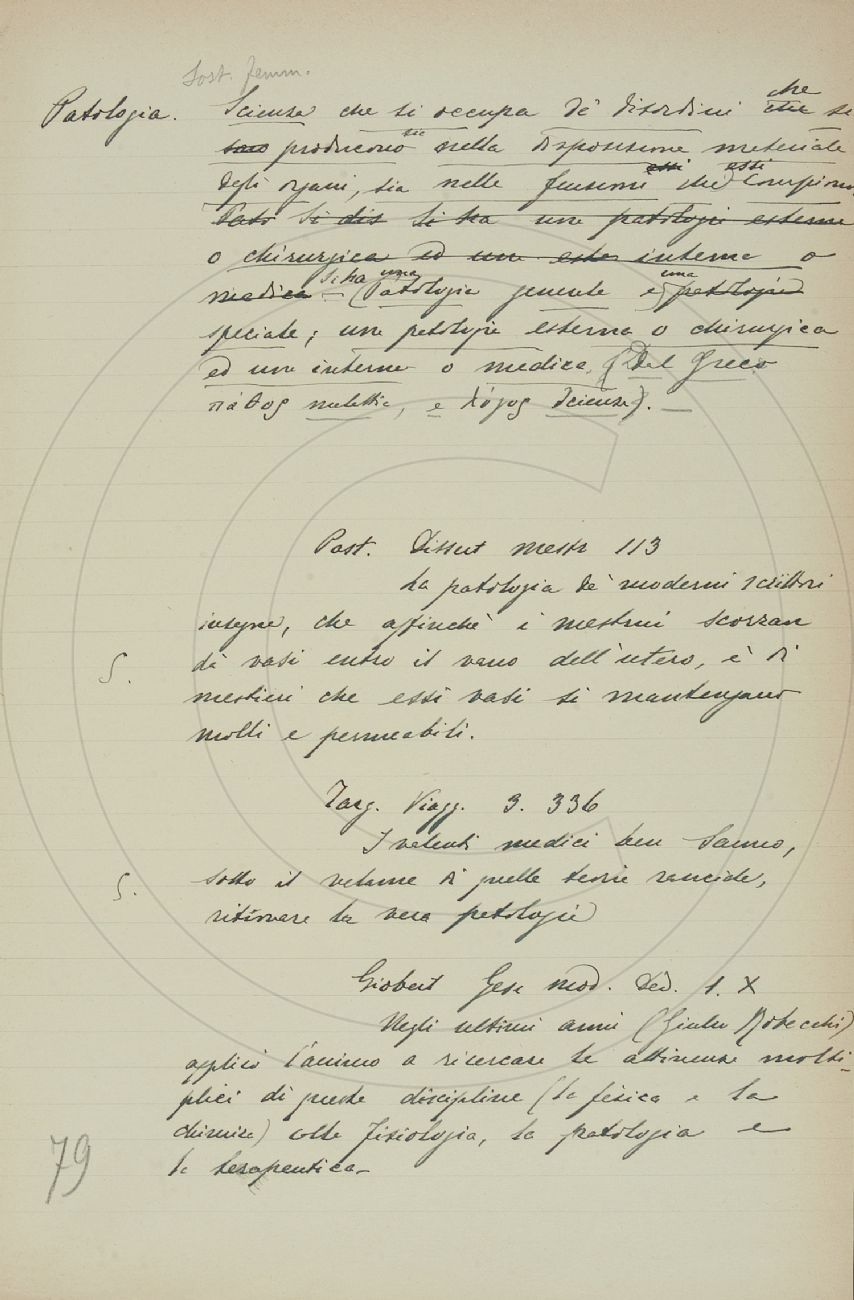 Sost. femm.
Patologia. Scienza che si occupa de' disordini che che si
sono producono sia nella disposizione materiale
degli organi, sia nelle funzioni essi che essi compiono.
Pato Si dis Si ha una patologia esterna
o chirurgica ed una ester interna o
medica. — Si ha una (Patologia generale e una patologia
speciale; una patologia esterna o chirurgica
ed una interna o medica. (Dal Greco
πάθος malattia, e λόγος scienza). —
Past. Dissert mestr 113
La patologia de' moderni scrittori
insegna, che affinchè i mestrui scorran
da' vasi entro il vano dell'utero, è di
S. mestieri che essi vasi si mantengano
molli e permeabili.
Targ. Viagg. 3. 336
I valenti medici ben sanno,
S. sotto il velame di quelle teorie rancide,
ritrovare la vera patologia
Giobert Gesu mod. Ded. 1. X
Negli ultimi anni (Giulio Robecchi)
applicò l'animo a ricercare le attinenze molti-
plici di queste discipline (la fisica e la
chimica) colla fisiologia, la patologia e
la terapeutica—
79